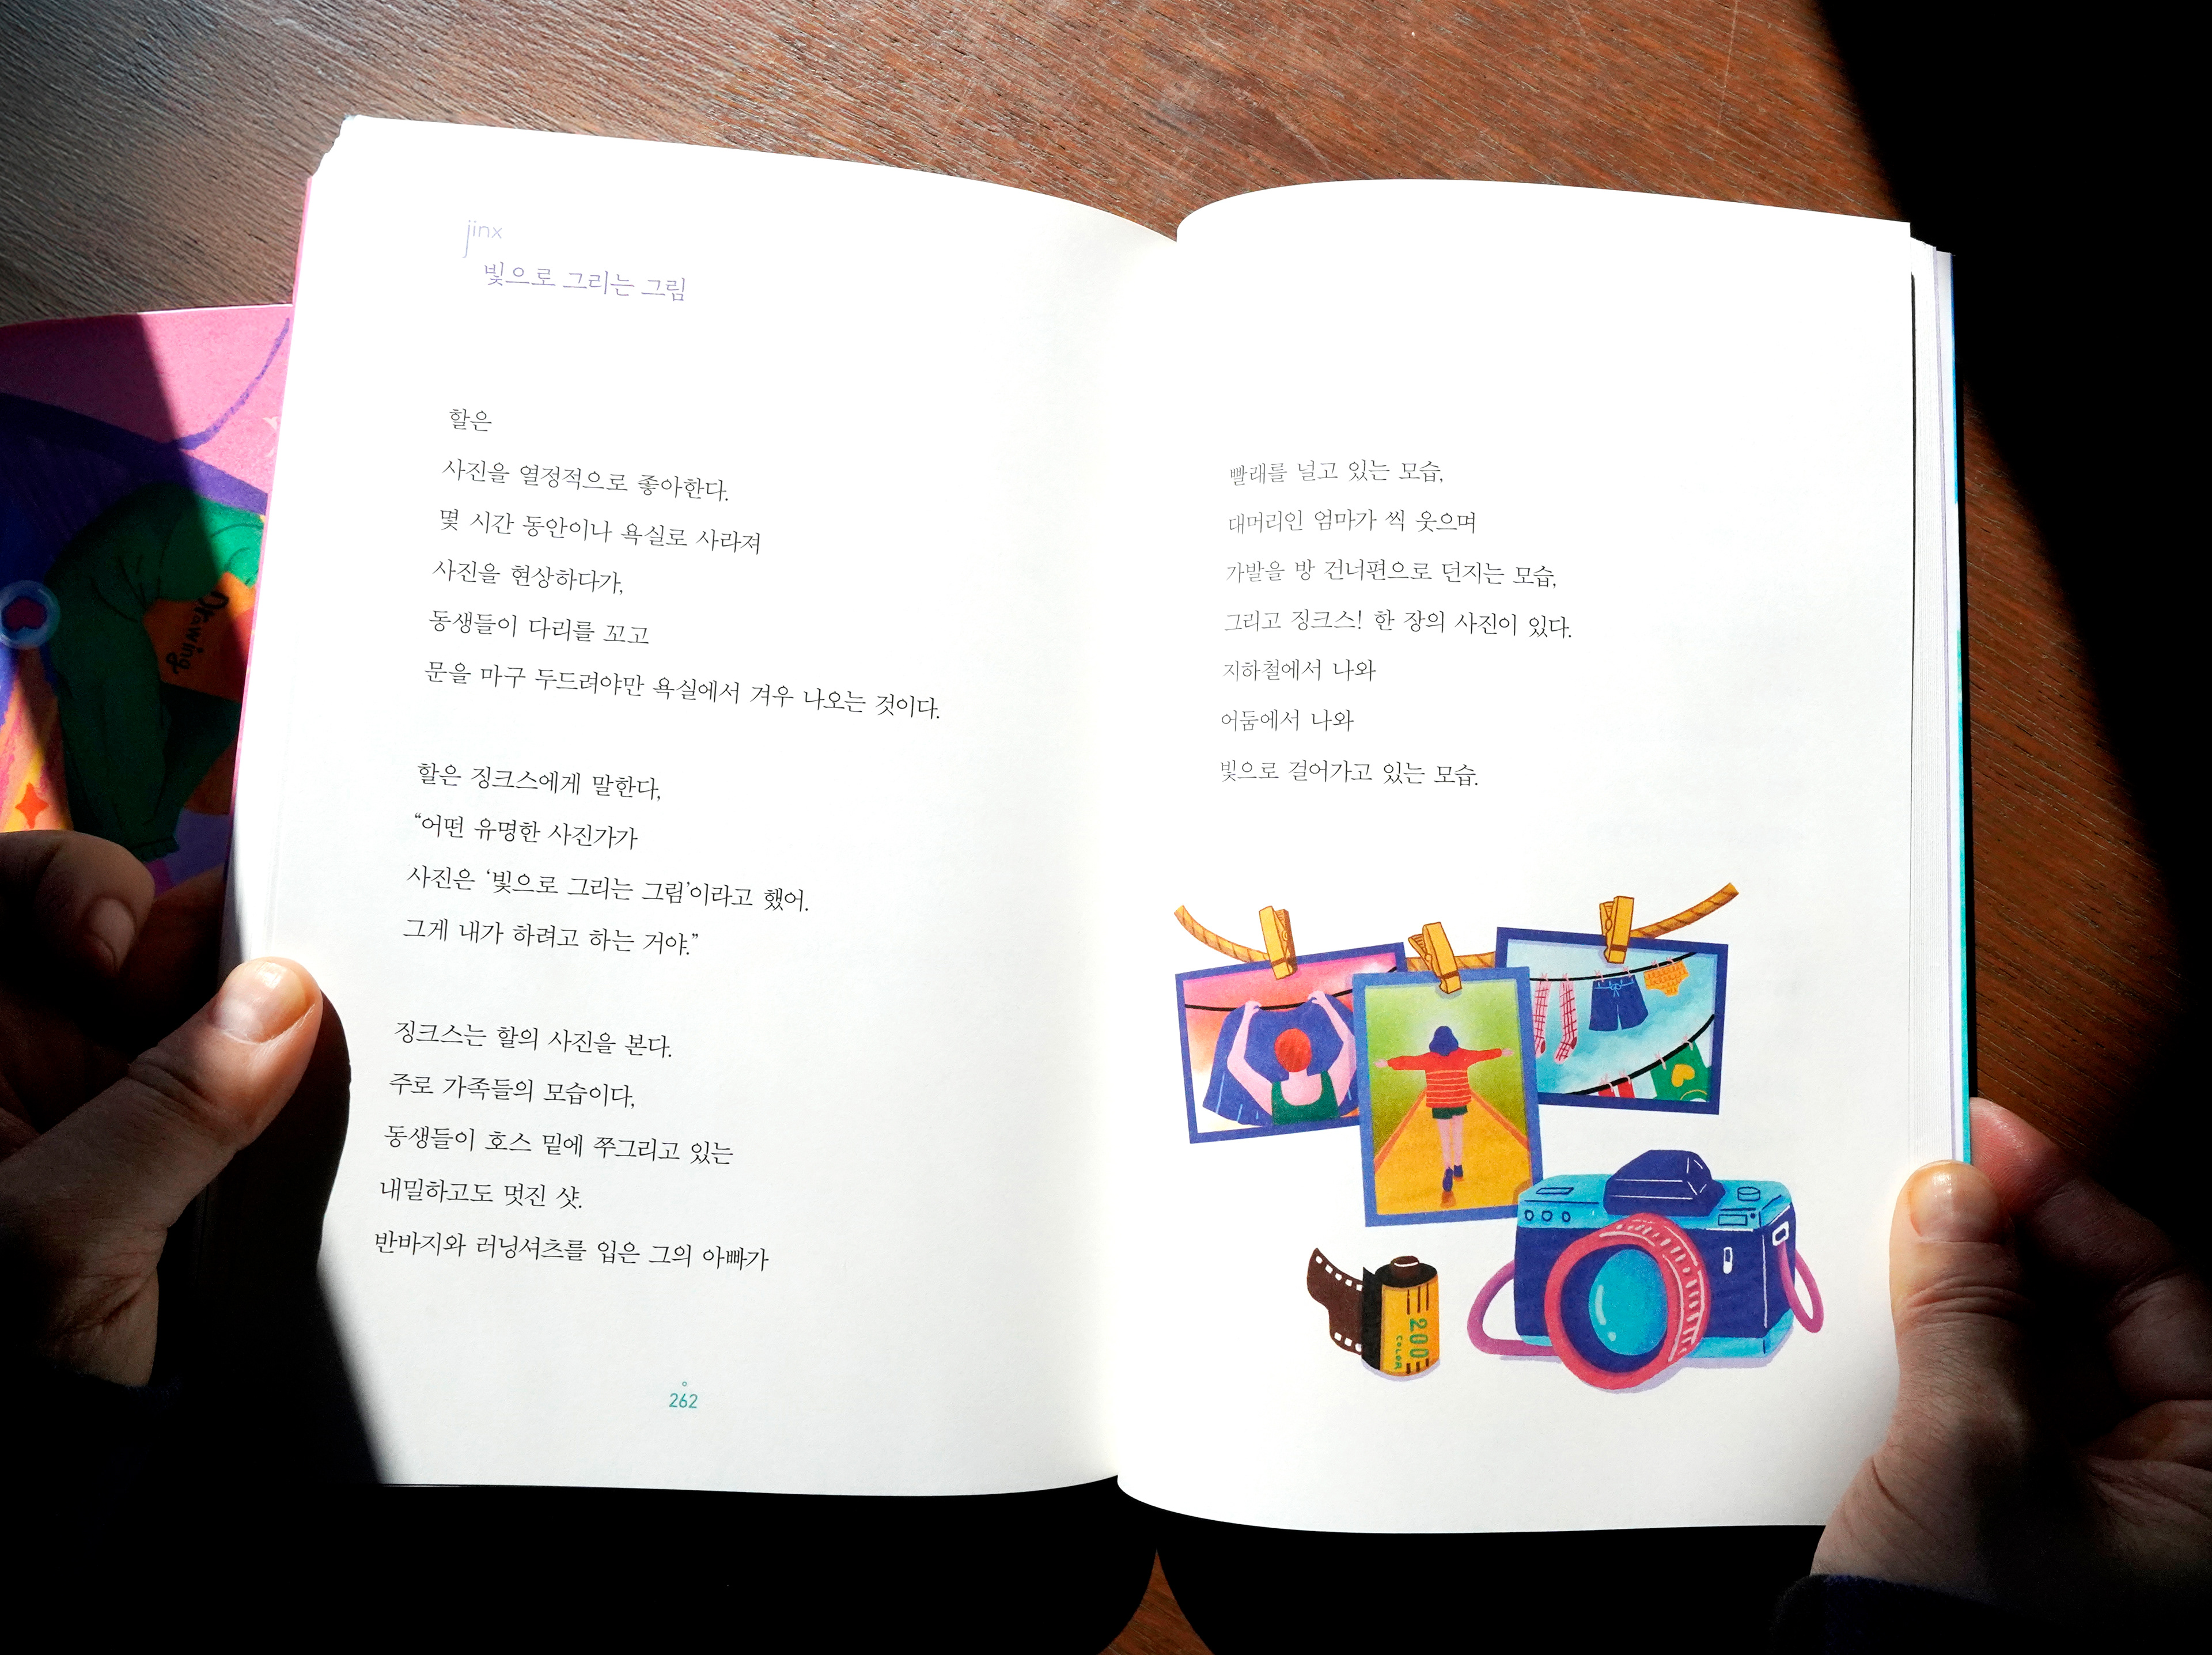 jinx
빛으로 그리는 그림
할은
사진을 열정적으로 좋아한다.
몇 시간 동안이나 욕실로 사라져
사진을 현상하다가,
동생들이 다리를 꼬고
문을 마구 두드려야만 욕실에서 겨우 나오는 것이다.
할은 징크스에게 말한다,
“어떤 유명한 사진가가
사진은 ‘빛으로 그리는 그림’이라고 했어.
그게 내가 하려고 하는 거야.”
징크스는 할의 사진을 본다.
주로 가족들의 모습이다,
동생들이 호스 밑에 쭈그리고 있는
내밀하고도 멋진 샷.
반바지와 러닝셔츠를 입은 그의 아빠가
262
빨래를 널고 있는 모습,
대머리인 엄마가 씩 웃으며
가발을 방 건너편으로 던지는 모습,
그리고 징크스! 한 장의 사진이 있다.
지하철에서 나와
어둠에서 나와
빛으로 걸어가고 있는 모습.
200
COLOR
Drawing